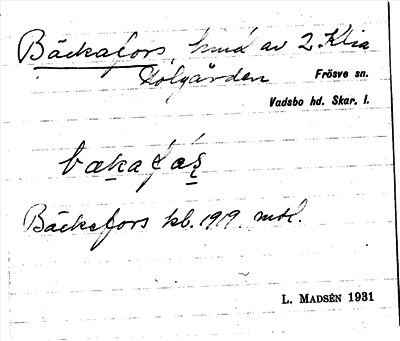 Bäckafors, hmd av 2. Klia
Holgården Frösve sn.
Vadsbo hd. Skar. l.
bækafås
Bäckefors kb. 1919. mtl.
L. MADSÉN 1931